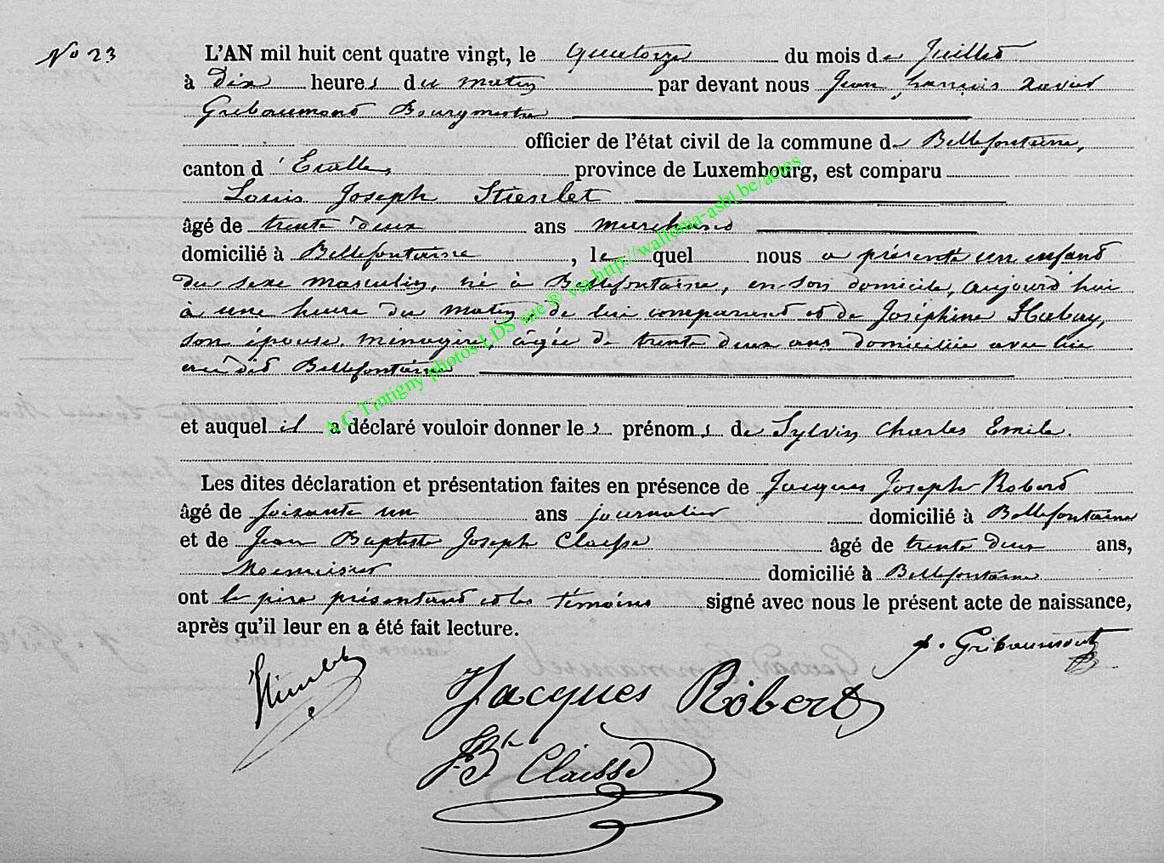 No 23
L'AN mil huit cent quatre vingt, le quatorze du mois de Juillet
à dix heures du matin par devant nous Jean François Xavier
Gribaumont Bourgmestre
officier de l'état civil de la commune de Bellefontaine,
canton d'Etalle, province de Luxembourg, est comparu
Louis Joseph
âgé de trente deux ans marchand
domicilié à Bellefontaine, lequel nous a présenté un enfant
du sexe masculin, né à Bellefontaine, en son domicile, aujourd'hui
à une heure du matin, de lui comparant et de Joséphine Habay,
son épouse, ménagère, âgée de trente deux ans domiciliée avec lui
au dit Bellefontaine
et auquel il a déclaré vouloir donner les prénoms de Sylvin Charles Emile.
Les dites déclaration et présentation faites en présence de Jacques Joseph Robert
âgé de soixante un ans journalier domicilié à Bellefontaine
et de Jean Baptiste Joseph Claisse âgé de trente deux ans,
Menuisier domicilié à Bellefontaine
ont le père présentant et les témoins signé avec nous le présent acte de naissance,
après qu'il leur en a été fait lecture.
Gribaumont
Jacques Robert
JBte Claisse
A.C Tintigny photos LDS site® via http://wallonia-asbl.be/actes